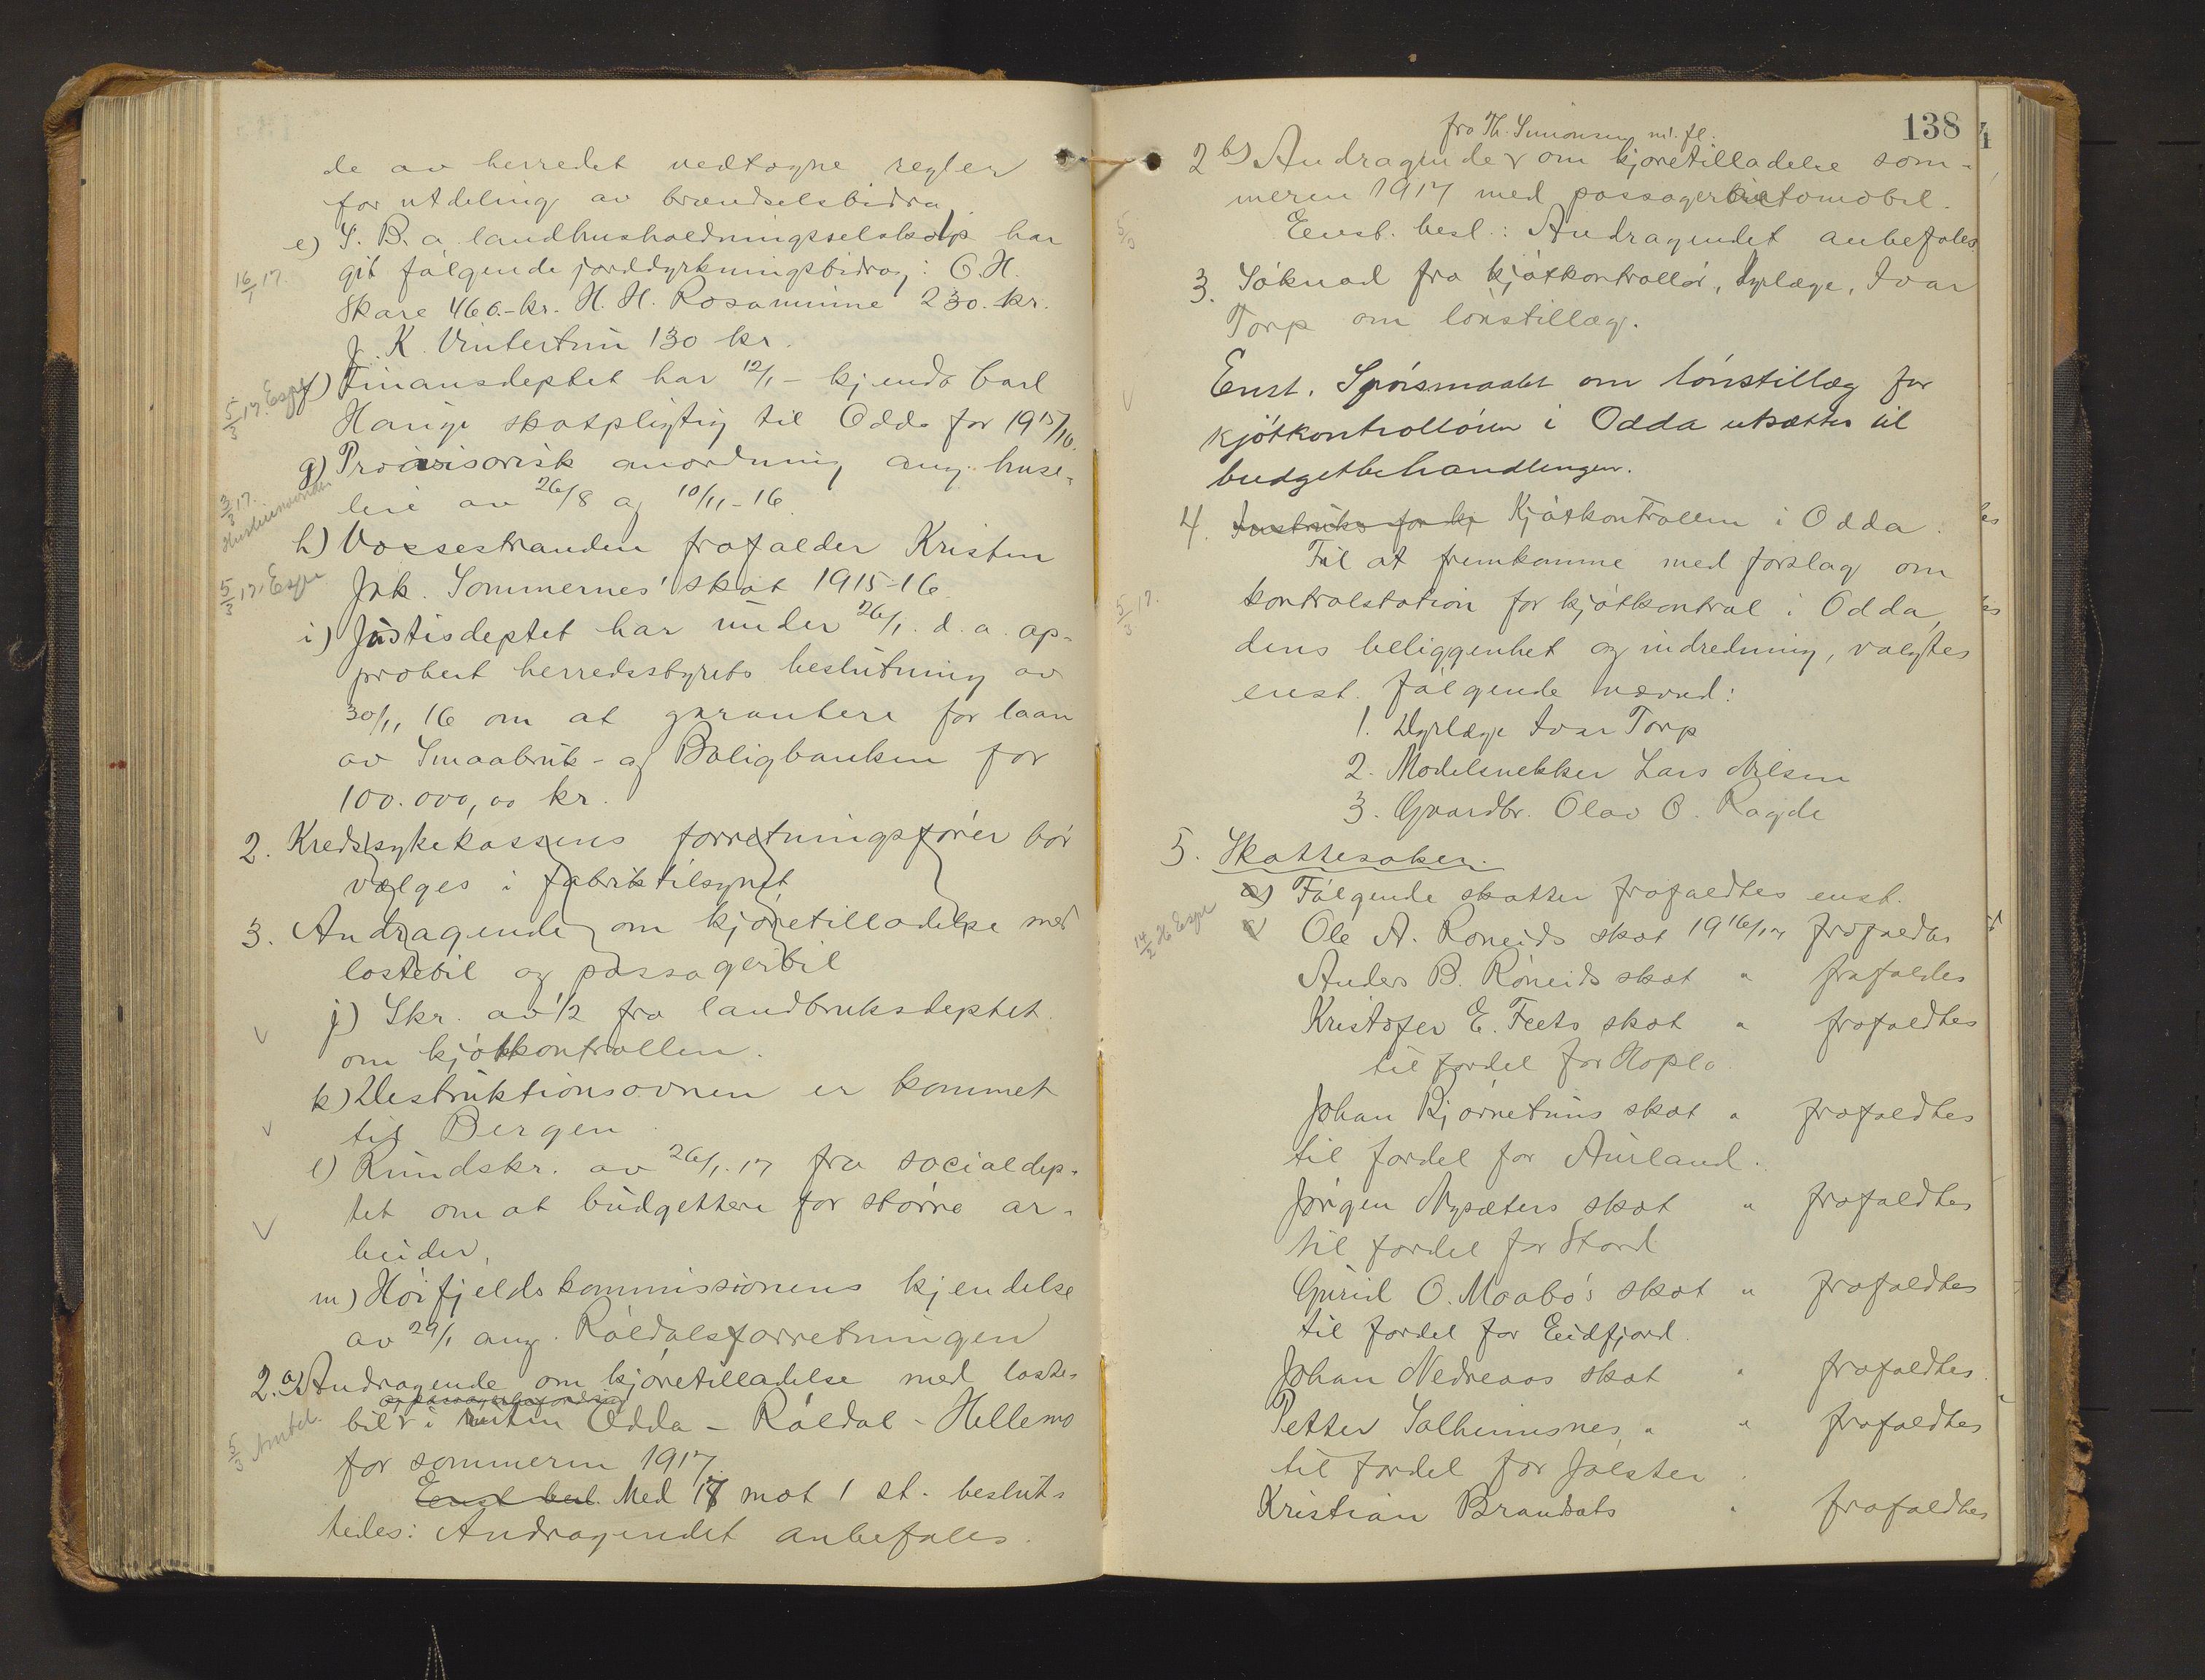 de av herredet vedtagne regler
for utdeling av brændselsbidra
e) S. B. a. landhusholdningsselskap har
16/1 17.
git følgende jorddyrkningsbidrag: O. H.
Skare 460.- kr. H. H. Rosamunne 230.- kr.
J. K. Vintertun 130 kr.
5/3 17. Espe
f) Finansdeptet har 12/1 - kjendt Carl
Hauge skatpligtig til Odda for 1915/16.
g) Provisorisk anordning ang. huse-
3/3 17. Husleienævnden
leie av 26/8 og 10/11 - 16.
h) Vossestranden frafalder Kristen
5/3 17. Espe
Jak. Sommernes' skat 1915-16.
i) Justisdeptet har under 26/1. d. a. ap-
probert herredsstyrets beslutning av
30/11 16 om at garantere for laan
av Smaabruk- og Boligbanken for
100.000,00 kr.
2. Kredssykekassens forretningsfører bør
vælges i fabriktilsynet
3. Andragende om kjøretilladelse med
lastebil og passagerbil
j) Skr. av 1/2 fra landbruksdeptet
om kjøtkontrollen.
k) Destruktionsovnen er kommet
til Bergen
l) Rundskr. av 26/1. 17 fra socialdep-
tet om at budgettere for større ar-
beider.
m) Høifjeldskommissionens kjendelse
av 29/1 ang. Røldalsforretningen
2. a) Andragende om kjøretilladelse med laste-
bil i ruten Odda - Røldal - Hellemo
5/3 Amtet.
for sommeren 1917.
Enst. besl. Med 17 mot 1 st. beslut-
tedes: Andragendet anbefales.
138
fra Th. Simonsen m. fl.
2 b) Andragende om kjøretilladelse som-
meren 1917 med passagerautomobil.
5/3
Eenst. besl.: Andragendet anbefales
3. Søknad fra kjøtkontrollør, dyrlæge, Ivar
Torp om lønstillæg.
Enst. Spørsmaalet om lønstillæg for
kjøtkontrolløren i Odda utsættes til
budgetbehandlingen.
4. Instruks for kj Kjøtkontrollen i Odda.
Til at fremkomme med forslag om
5/3 17.
kontrolstation for kjøtkontrol i Odda,
dens beliggenhet og indredning, valgtes
enst. følgende nævnd:
1. Dyrlæge Ivar Torp
2. Modelsnekker Lars Nilsen
3. Gaardbr. Olav O. Ragde
5. Skattesaker.
a) Følgende skatter frafaldtes enst.
14/2 H Espe
Ole A. Røneids skat 1916/17 frafaldtes
Anders B. Røneids skat " frafaldes
Kristofer E. Feets skat " frafaldtes
til fordel for Hopla.
Johan Bjørnetuns skat " frafaldtes
til fordel for Aurland.
Jørgen Nysæters skat " frafaldtes
til fordel for Stord
Gurid O. Maabø's skat " frafaldtes
til fordel for Eidfjord.
Johan Nedreaas skat " frafaldtes
Petter Solheimsnes, " " frafaldtes
til fordel for Jølster.
Kristian Brandsøts " frafaldtes